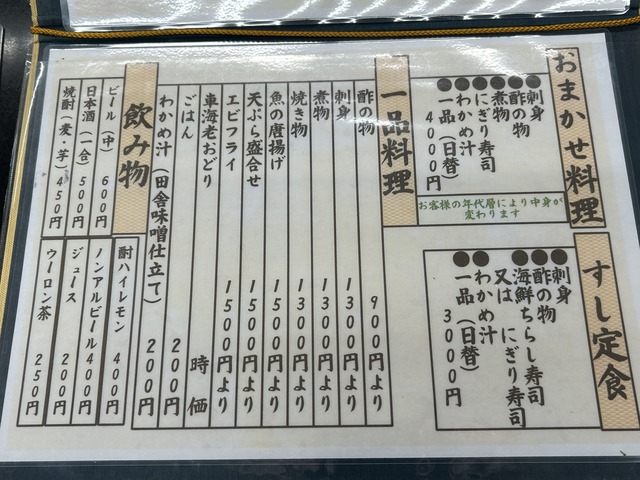 おまかせ料理
●刺身
●酢の物
●煮物
●にぎり寿司
●わかめ汁
●一品(日替)
4000円
お客様の年代層により中身が
変わります
すし定食
●刺身
●酢の物
●海鮮ちらし寿司
又は にぎり寿司
●わかめ汁
●一品(日替)
3000円
一品料理
酢の物 900円より
刺身 1300円より
煮物 1300円より
焼き物 1300円より
魚の唐揚げ 1500円より
天ぷら盛合せ 1500円より
エビフライ 1500円より
車海老おどり 時価
ごはん 200円
わかめ汁(田舎味噌仕立て) 200円
飲み物
ビール(中) 600円
日本酒(一合) 500円
焼酎(麦・芋) 450円
酎ハイレモン 400円
ノンアルビール 400円
ジュース 200円
ウーロン茶 250円